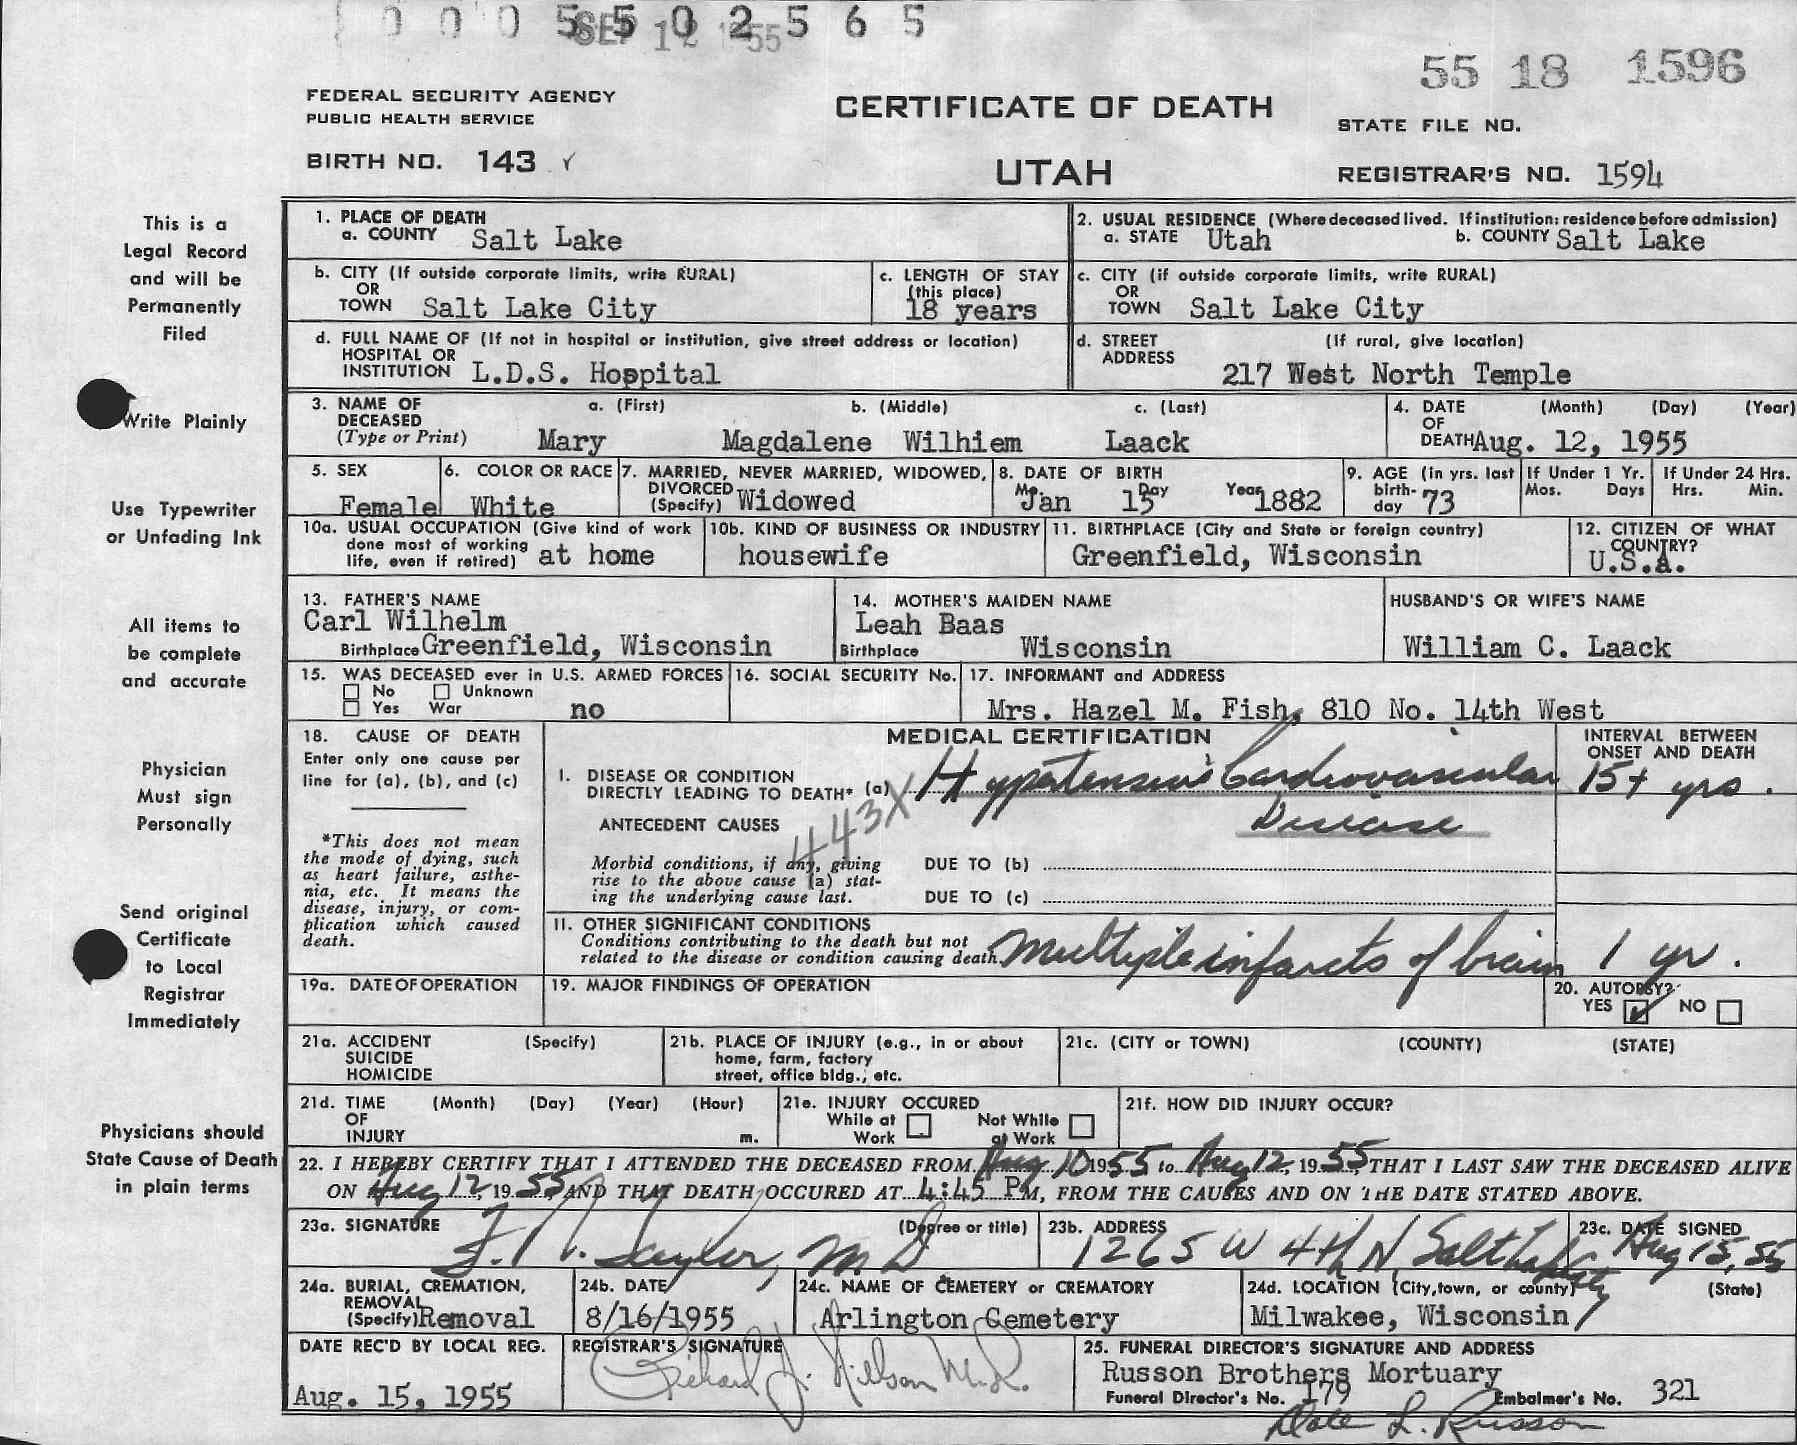 0 0 0 5 5 0 2 5 6 5
SEP 12 1955
55 18 1596
FEDERAL SECURITY AGENCY
PUBLIC HEALTH SERVICE
CERTIFICATE OF DEATH
STATE FILE NO.
BIRTH NO. 143
UTAH
REGISTRAR'S NO. 1594
This is a
Legal Record
and will be
Permanently
Filed
Write Plainly
Use Typewriter
or Unfading Ink
All items to
be complete
and accurate
Physician
Must sign
Personally
Send original
Certificate
to Local
Registrar
Immediately
Physicians should
State Cause of Death
in plain terms
1. PLACE OF DEATH
a. COUNTY Salt Lake
2. USUAL RESIDENCE (Where deceased lived. If institution: residence before admission)
a. STATE Utah b. COUNTY Salt Lake
b. CITY (If outside corporate limits, write RURAL)
OR
TOWN Salt Lake City
c. LENGTH OF STAY
(this place)
18 years
c. CITY (if outside corporate limits, write RURAL)
OR
TOWN Salt Lake City
d. FULL NAME OF (If not in hospital or institution, give street address or location)
HOSPITAL OR
INSTITUTION L.D.S. Hospital
d. STREET (If rural, give location)
ADDRESS
217 West North Temple
3. NAME OF a. (First) b. (Middle) c. (Last)
DECEASED
(Type or Print) Mary Magdalene Wilhiem Laack
4. DATE (Month) (Day) (Year)
OF
DEATH Aug. 12, 1955
5. SEX
Female
6. COLOR OR RACE
White
7. MARRIED, NEVER MARRIED, WIDOWED,
DIVORCED
(Specify) Widowed
8. DATE OF BIRTH
Mo. Day Year
Jan 15 1882
9. AGE (in yrs. last
birth-
day 73
If Under 1 Yr.
Mos. Days
If Under 24 Hrs.
Hrs. Min.
10a. USUAL OCCUPATION (Give kind of work
done most of working
life, even if retired) at home
10b. KIND OF BUSINESS OR INDUSTRY
housewife
11. BIRTHPLACE (City and State or foreign country)
Greenfield, Wisconsin
12. CITIZEN OF WHAT
COUNTRY?
U.S.A.
13. FATHER'S NAME
Carl Wilhelm
Birthplace Greenfield, Wisconsin
14. MOTHER'S MAIDEN NAME
Leah Baas
Birthplace Wisconsin
HUSBAND'S OR WIFE'S NAME
William C. Laack
15. WAS DECEASED ever in U.S. ARMED FORCES
No Unknown
Yes War no
16. SOCIAL SECURITY No.
17. INFORMANT and ADDRESS
Mrs. Hazel M. Fish, 810 No. 14th West
18. CAUSE OF DEATH
Enter only one cause per
line for (a), (b), and (c)
*This does not mean
the mode of dying, such
as heart failure, asthe-
nia, etc. It means the
disease, injury, or com-
plication which caused
death.
MEDICAL CERTIFICATION
INTERVAL BETWEEN
ONSET AND DEATH
I. DISEASE OR CONDITION
DIRECTLY LEADING TO DEATH* (a) Hypertensive Cardiovascular 15+ yrs.
Disease
443X
ANTECEDENT CAUSES
Morbid conditions, if any, giving
rise to the above cause (a) stat-
ing the underlying cause last.
DUE TO (b)
DUE TO (c)
II. OTHER SIGNIFICANT CONDITIONS
Conditions contributing to the death but not
related to the disease or condition causing death. Multiple infarcts of brain 1 yr.
19a. DATE OF OPERATION
19. MAJOR FINDINGS OF OPERATION
20. AUTOPSY?
YES NO
21a. ACCIDENT (Specify)
SUICIDE
HOMICIDE
21b. PLACE OF INJURY (e.g., in or about
home, farm, factory
street, office bldg., etc.
21c. (CITY or TOWN) (COUNTY) (STATE)
21d. TIME (Month) (Day) (Year) (Hour)
OF
INJURY m.
21e. INJURY OCCURED
While at Not While
Work at Work
21f. HOW DID INJURY OCCUR?
22. I HEREBY CERTIFY THAT I ATTENDED THE DECEASED FROM Aug 10 1955 to Aug 12, 1955, THAT I LAST SAW THE DECEASED ALIVE
ON Aug 12, 1955 AND THAT DEATH OCCURED AT 4:45 PM, FROM THE CAUSES AND ON THE DATE STATED ABOVE.
23a. SIGNATURE (Degree or title)
M D
23b. ADDRESS
1265 W 4th N Salt Lake City
23c. DATE SIGNED
Aug 15, 55
24a. BURIAL, CREMATION,
REMOVAL
(Specify) Removal
24b. DATE
8/16/1955
24c. NAME OF CEMETERY or CREMATORY
Arlington Cemetery
24d. LOCATION (City, town, or county) (State)
Milwakee, Wisconsin
DATE REC'D BY LOCAL REG.
Aug. 15, 1955
REGISTRAR'S SIGNATURE
Richard J. Nilson M.D.
25. FUNERAL DIRECTOR'S SIGNATURE AND ADDRESS
Russon Brothers Mortuary
Funeral Director's No. 179 Embalmer's No. 321
Dale L. Russon